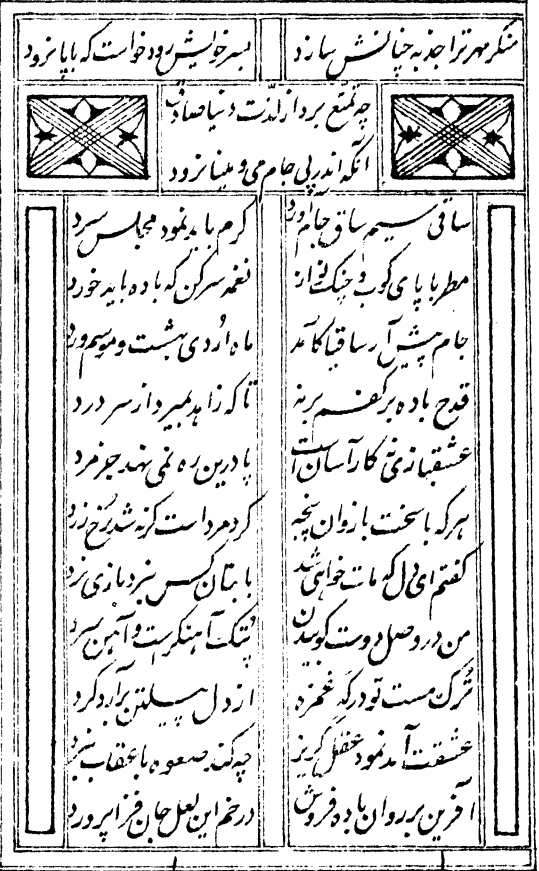 منکر مهر ترا جذبه چنانش سازد
بسر خویش رود خواست که با پا نرود
چه تمتع برد از لذت دنیا صادق
آنکه اندر پی جام می و مینا نرود
ساقی سیم ساق جام آورد
کرم باید نمود مجلس سرد
مطربا پای کوب و چنک نواز
نغمه سرکن که باده باید خورد
جام پیش آر ساقیا کآمد
ماه اردی بهشت و موسم ورد
قدح باده بر کفم برنه
تا که زاهد بمیرد از سر درد
عشقبازی نه کار آسان است
پا درین ره نمی نهد جز مرد
هر که با سخت بازوان پنجه
کرد مرد است کرنه شد رخ زرد
کفتم ای دل که مات خواهی شد
با بتان کس نبرد بازی نرد
من در وصل دوست کوبیدن
پتک آهنکر است و آهن سرد
ترک مست تو در که غمزه
از دل پیلتن برآرد کرد
عشقت آمد نمود عقل کریز
چه کند صعوه با عقاب نبرد
آفرین بر روان باده فروش
در خم این لعل جان فزا پرورد